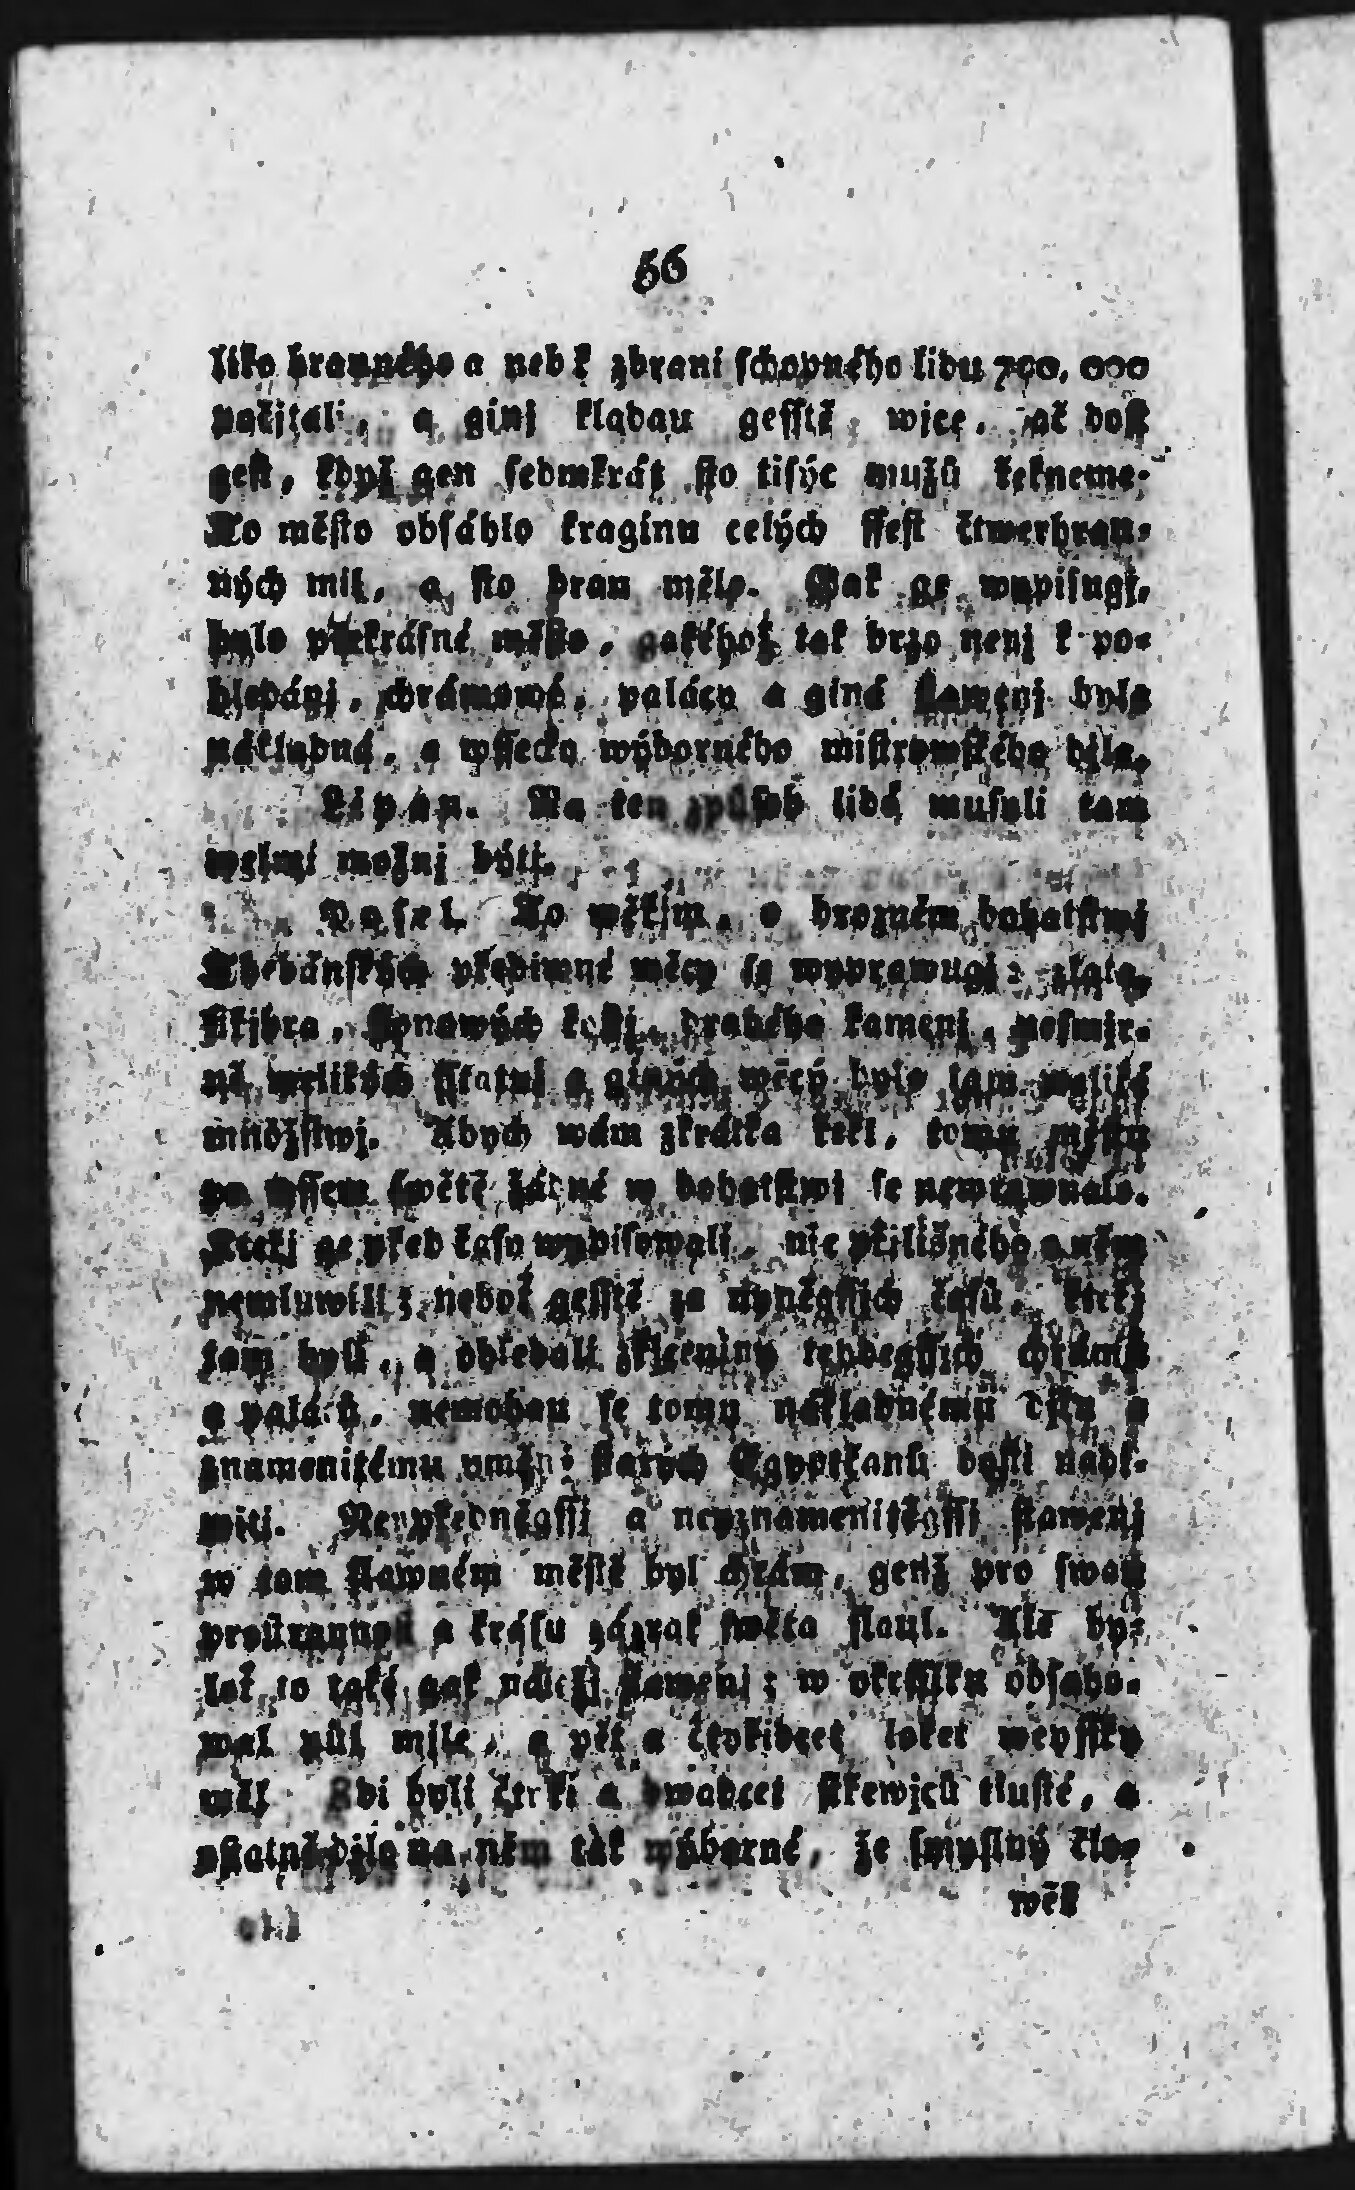 56
liko branného a neb k zbrani schopného lidu 700,000
načjtali, a ginj kladau gesstě wjce, ač dost
gest, když gen sedmkrát sto tisýc mužů řekneme.
To město obsáhlo kraginu celých ssest čtwerhran-
ných mil, a sto bran mělo. Gak ge wypisugj,
bylo překrásné město, gakéhož tak brzo nenj k po-
hledánj, chrámowé, palácy a giné stawenj bylo
nákladné, a wssecko wýborného mistrowského djla.
Sspan. Na ten způsob lidé musyli tam
welmi možnj býti.
Posel. To wěřjm, o hrozném bohatstwj
Thebánských přediwné wěcy se wyprawugj: zlata,
střjbra, slonowých kostj, drahého kamenj, nesmjr-
ně welikých sstatuj a giných wěcý bylo tam weliké
množstwj. Abych wám zkrátka řekl, tomu městu
po wssem swětě žádné w bohatstwj se newrownalo.
Kteřj ge před časy wypisowali, nic přjlišného o něm
nemluwili; neboť gesstě za nyněgssjch časů, kteřj
tam byli, a ohledali zřjceniny tehdegssjch chrámů
a paláců, nemohau se tomu nákladnému djlu a
znamenitému uměnj starých Egyptčanů dosti nadi-
witi. Neypředněgssj a neyznamenitěgssj stawenj
w tom slawném městě byl chrám, genž pro swau
prostrannost a krásu zázrak swěta slaul. Ale by-
loť to také gak náležj stawenj; w okrsslku obsaho-
wal půl mjle, a pět a čtyřidcet loket weyssky
měl Zdi byli čtrti a dwadcet střewjců tlusté, a
ostatně djlo na něm tak wýborné, že smyslný člo-
wěk